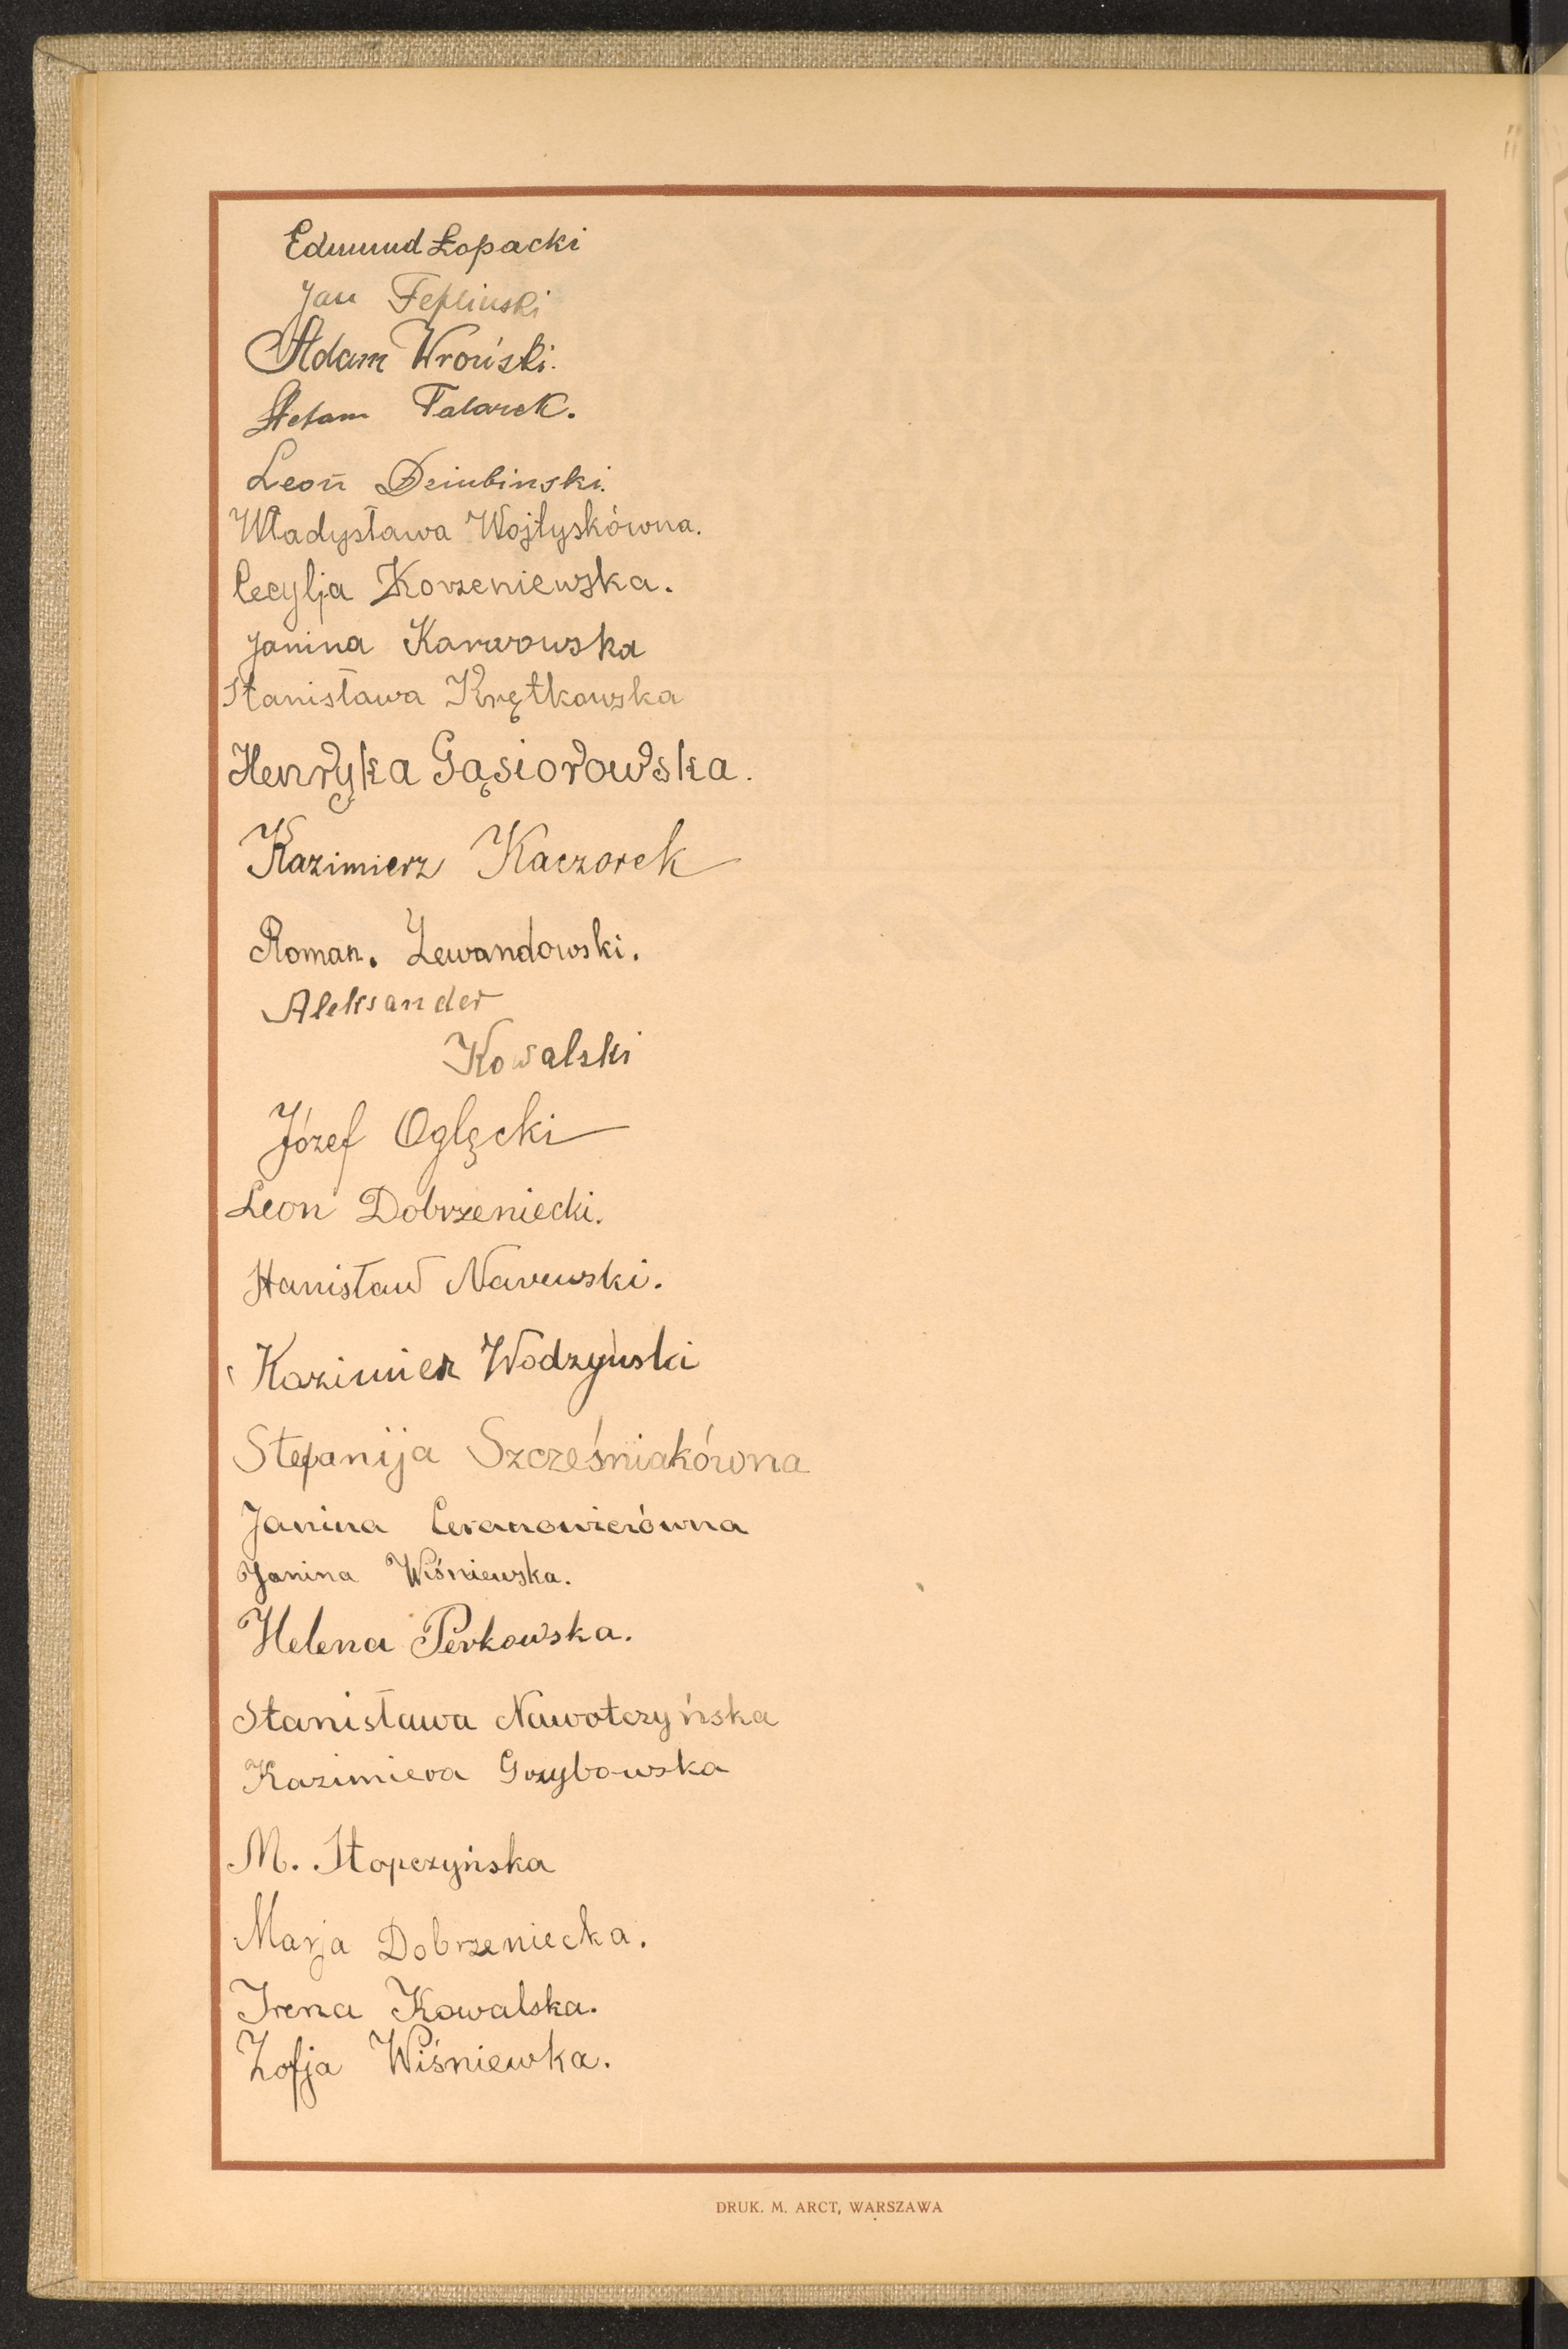 Edmund Łopacki
Jan Tepliński
Adam Wroński.
Stefan Talarek.
Leon Dziubinski.
Władysława Wojtyskówna.
Cecylja Korzeniewska.
Janina Karwowska
Stanisława Krętkowska
Henryka Gąsiorowska.
Kazimierz Kaczorek
Roman. Lewandowski.
Aleksander
Kowalski
Józef Oglęcki
Leon Dobrzeniecki.
Stanisław Narewski.
Kazimierz Wodzyński
Stefanija Szcześniakówna
Janina Ceranowiczówna
Janina Wiśniewska.
Helena Perkowska.
Stanisława Nawotczyńska
Kazimiera Grzybowska
M. Stopczyńska
Marja Dobrzeniecka.
Irena Kowalska.
Zofja Wiśniewka.
DRUK. M. ARCT, WARSZAWA